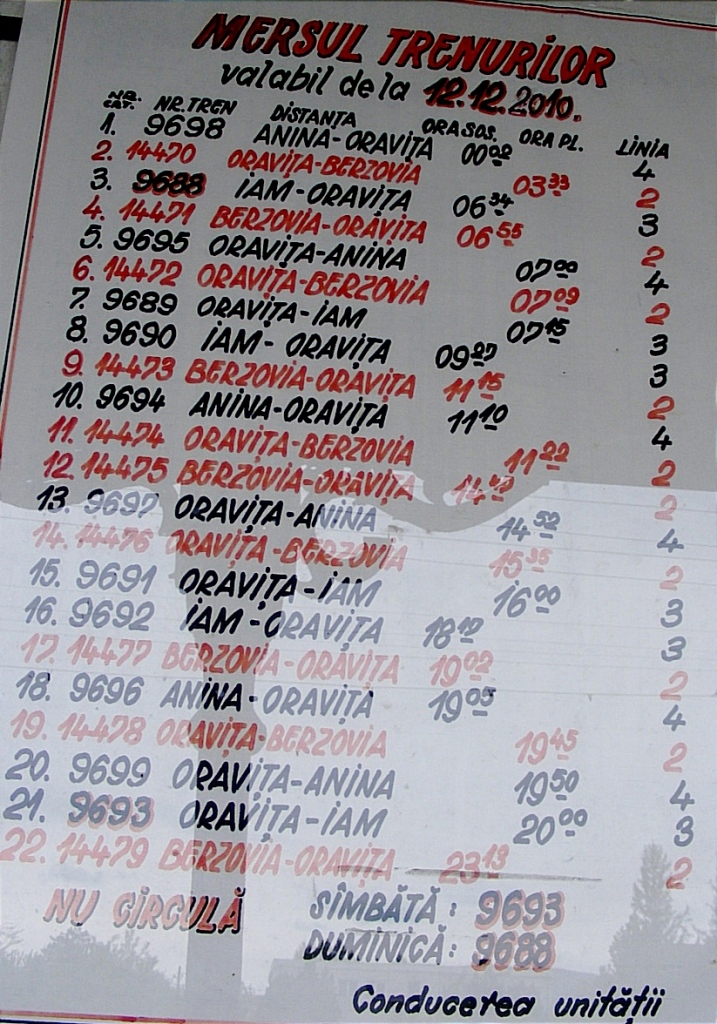 MERSUL TRENURILOR
valabil de la 12.12.2010.
NR. CRT. NR. TREN DISTANȚA ORA SOS. ORA PL. LINIA
1. 9698 ANINA-ORAVIȚA 00 02 4
2. 14470 ORAVIȚA-BERZOVIA 03 33 2
3. 9688 IAM-ORAVIȚA 06 34 3
4. 14471 BERZOVIA-ORAVIȚA 06 55 2
5. 9695 ORAVIȚA-ANINA 07 00 4
6. 14472 ORAVIȚA-BERZOVIA 07 09 2
7. 9689 ORAVIȚA-IAM 07 15 3
8. 9690 IAM-ORAVIȚA 09 27 3
9. 14473 BERZOVIA-ORAVIȚA 11 15 2
10. 9694 ANINA-ORAVIȚA 11 10 4
11. 14474 ORAVIȚA-BERZOVIA 11 22 2
12. 14475 BERZOVIA-ORAVIȚA 2
13. 9697 ORAVIȚA-ANINA 14 52 4
14. 14476 ORAVIȚA-BERZOVIA 15 35 2
15. 9691 ORAVIȚA-IAM 16 00 3
16. 9692 IAM-ORAVIȚA 18 10 3
17. 14477 BERZOVIA-ORAVIȚA 19 02 2
18. 9696 ANINA-ORAVIȚA 19 05 4
19. 14478 ORAVIȚA-BERZOVIA 19 45 2
20. 9699 ORAVIȚA-ANINA 19 50 4
21. 9693 ORAVIȚA-IAM 20 00 3
22. 14479 BERZOVIA-ORAVIȚA 23 13 2
NU CIRCULĂ SÎMBĂTĂ: 9693
DUMINICĂ: 9688
Conducerea unității